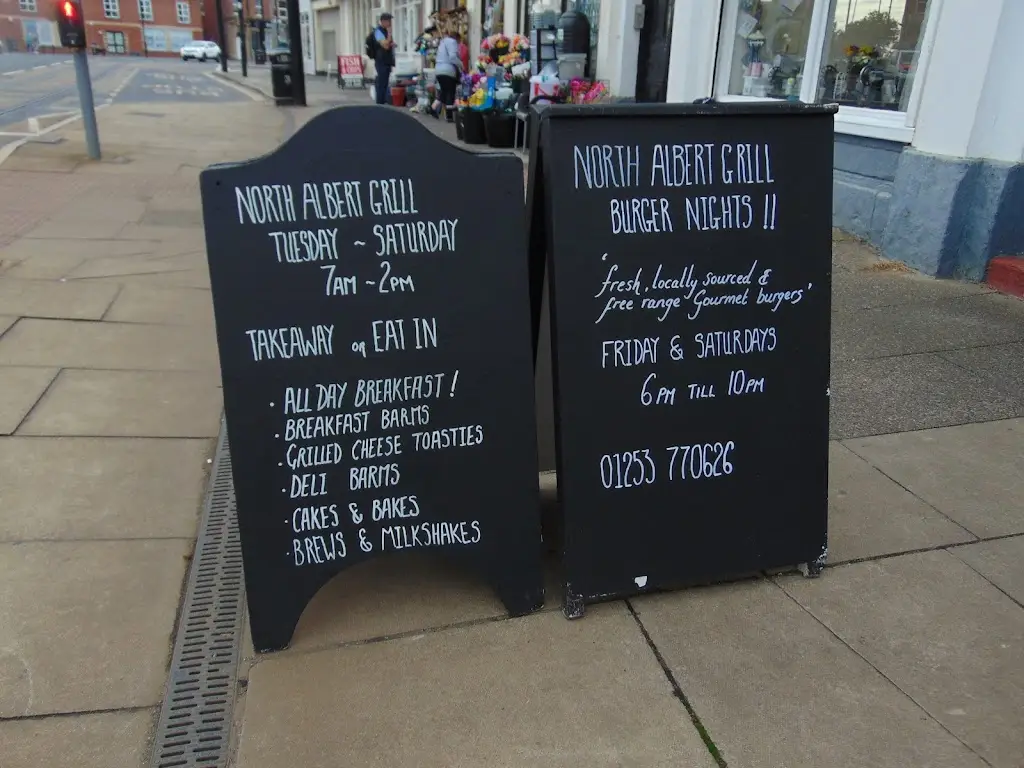 NORTH ALBERT GRILL
TUESDAY ~ SATURDAY
7AM ~ 2PM
TAKEAWAY or EAT IN
· ALL DAY BREAKFAST!
· BREAKFAST BARMS
· GRILLED CHEESE TOASTIES
· DELI BARMS
· CAKES & BAKES
· BREWS & MILKSHAKES
NORTH ALBERT GRILL
BURGER NIGHTS !!
'fresh, locally sourced &
free range Gourmet burgers'
FRIDAY & SATURDAYS
6PM TILL 10PM
01253 770626
FISH